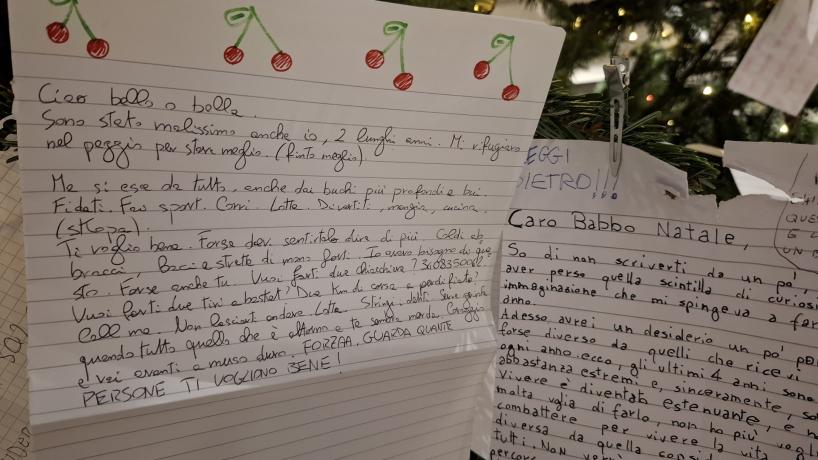 Ciao bello o bella.
Sono stato malissimo anche io, 2 lunghi anni. Mi rifugiavo
nel peggio per stare meglio. (finto meglio)
Ma si esce da tutto, anche dai buchi più profondi e bui.
Fidati. Fai sport. Corri. Lotta. Divertiti, mangia, cucina,
(stLopa).
Ti voglio bene. Forse devi sentirtelo dire di più. Caldi ab
bracci, Baci e strette di mano forti. Io avevo bisogno di que
sto. Forse anche tu. Vuoi farti due chiacchiere?
Vuoi farti due tiri a basket? Due km di corsa a perdifiato?
Call me. Non lasciarti andare. Lotta. Stringi i denti.
quando tutto quello che è attorno a te sembra merda. Coraggio
e vai avanti a muso duro. FORZAA. GUARDA QUANTE
PERSONE TI VOGLIONO BENE!
EGGI
PIETRO!!!
Caro Babbo Natale,
So di non scriverti da un po',
aver perso quella scintilla di curiosi
immaginazione che mi spingeva a far
anno.
Adesso avrei un desiderio un po' par
forse diverso da quelli che ricevi
ogni anno: ecco, gli ultimi 4 anni sono
abbastanza estremi e, sinceramente, so
Vivere è diventato estenuante, e n
molta voglia di farlo, non ho più vogli
combattere per vivere la vita
diversa da quella consid
tutti. Non
percors
QUES
E C
UN B